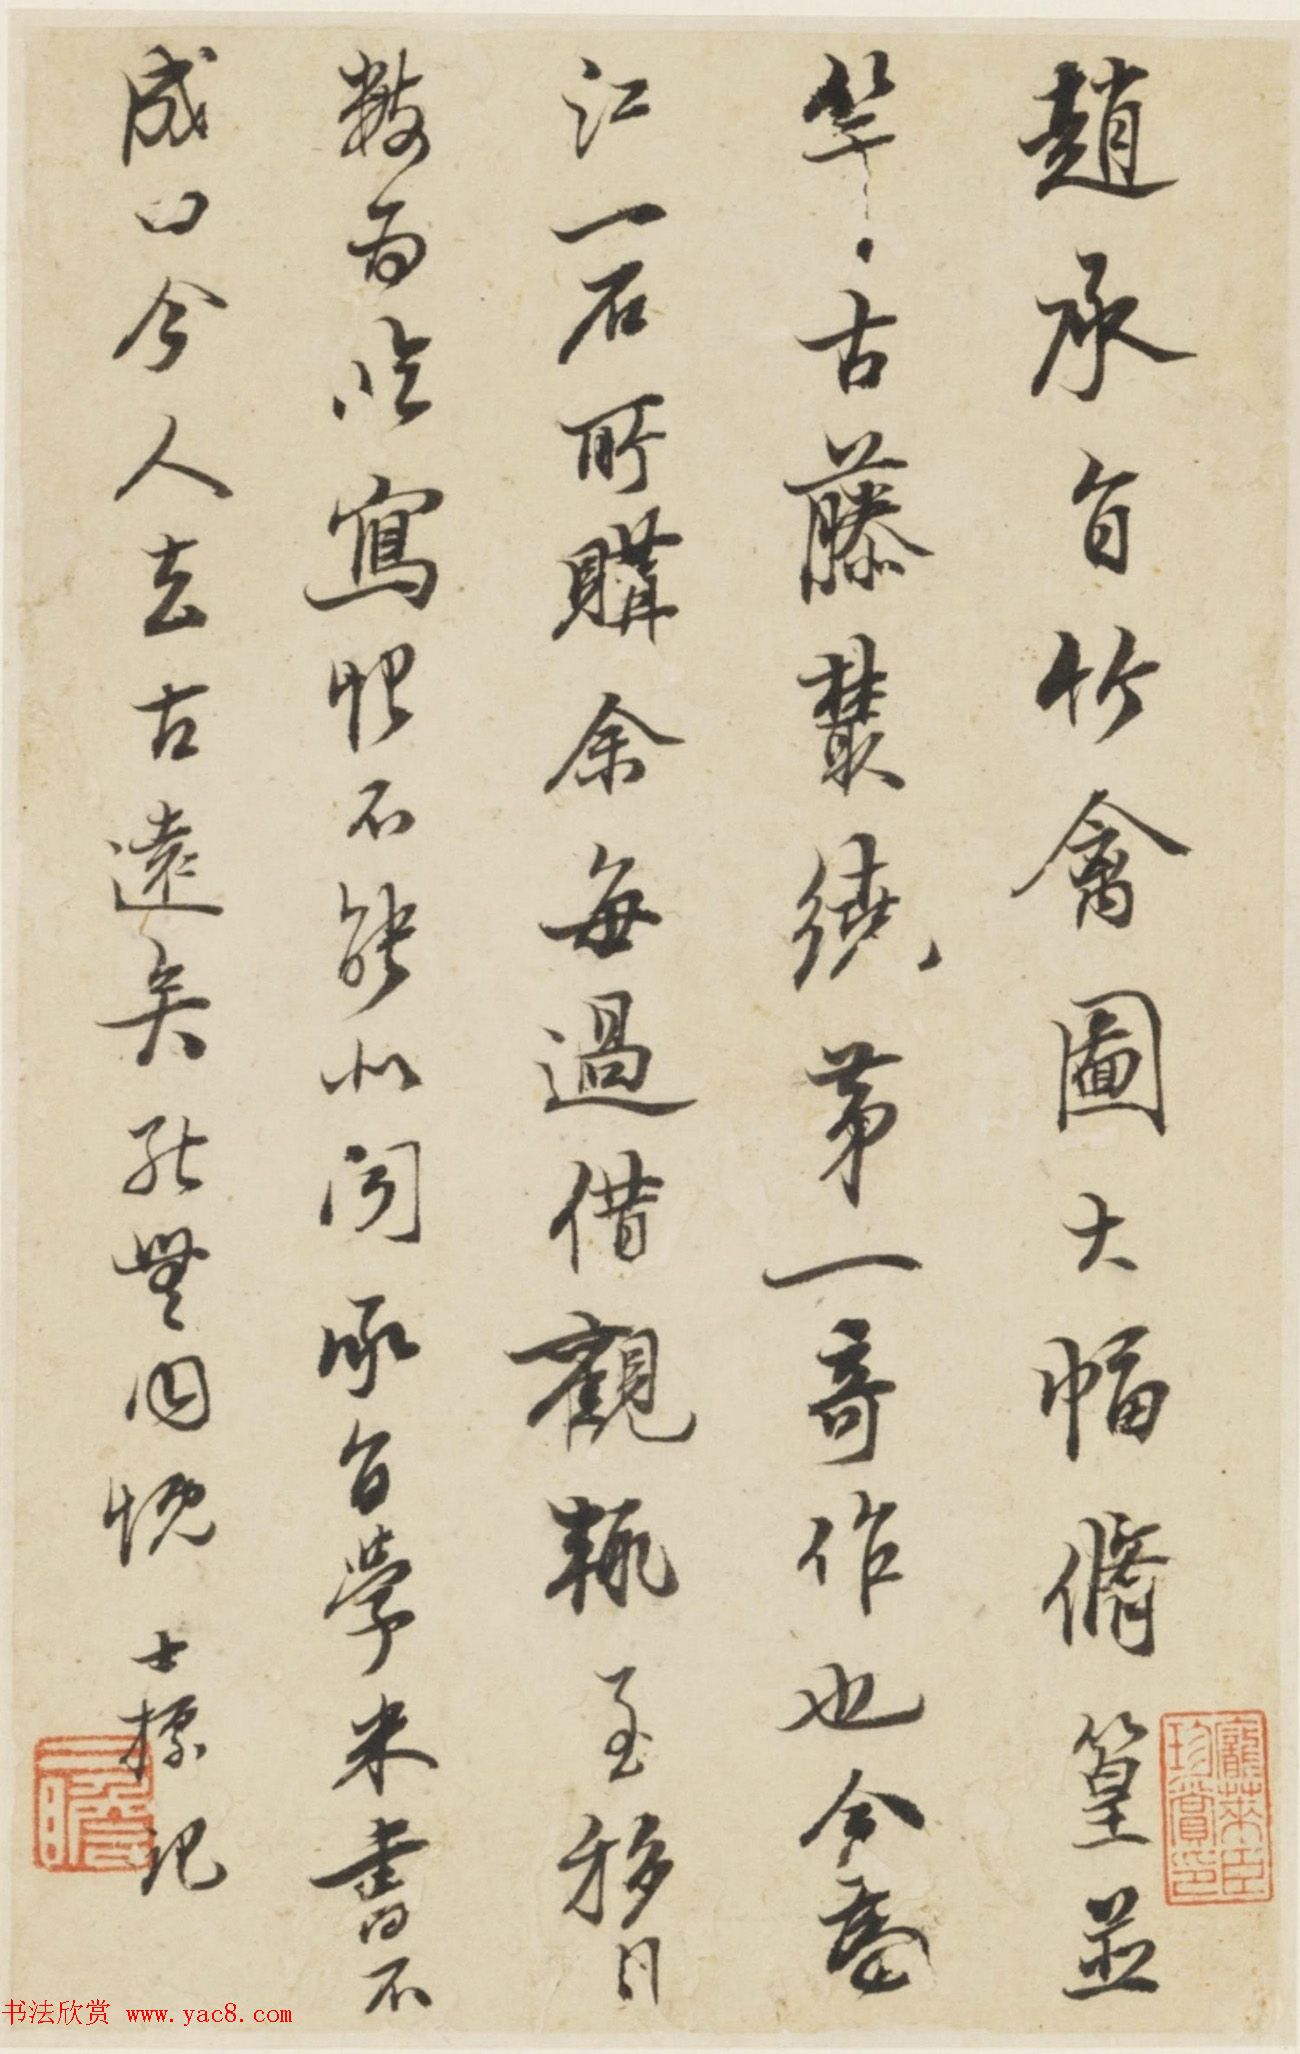 趙承旨竹禽圖大幅脩篁並
竿古藤叢繞第一奇作也今為
江一石所購余每過借觀輒至移日
數為臨寫恨不能似聞承旨學米書不
成曰今人去古遠矣能無同慨
士標記
龐萊臣珍賞印
书法欣赏 www.yac8.com